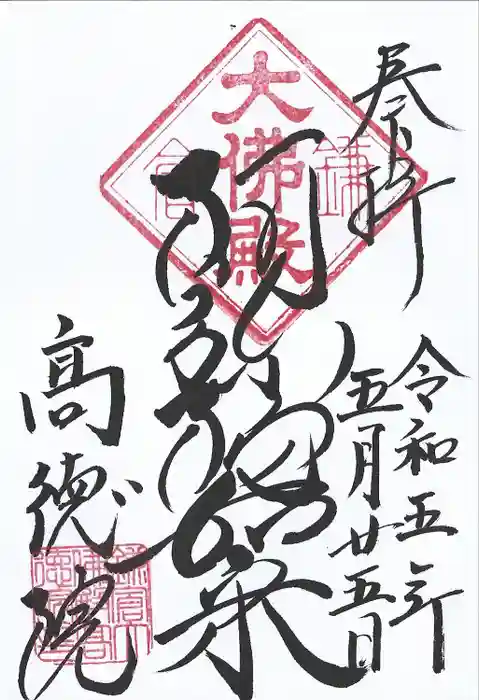 奉拝
令和五年
五月廿五日
鎌倉
大佛殿
阿弥陀如来
高徳院